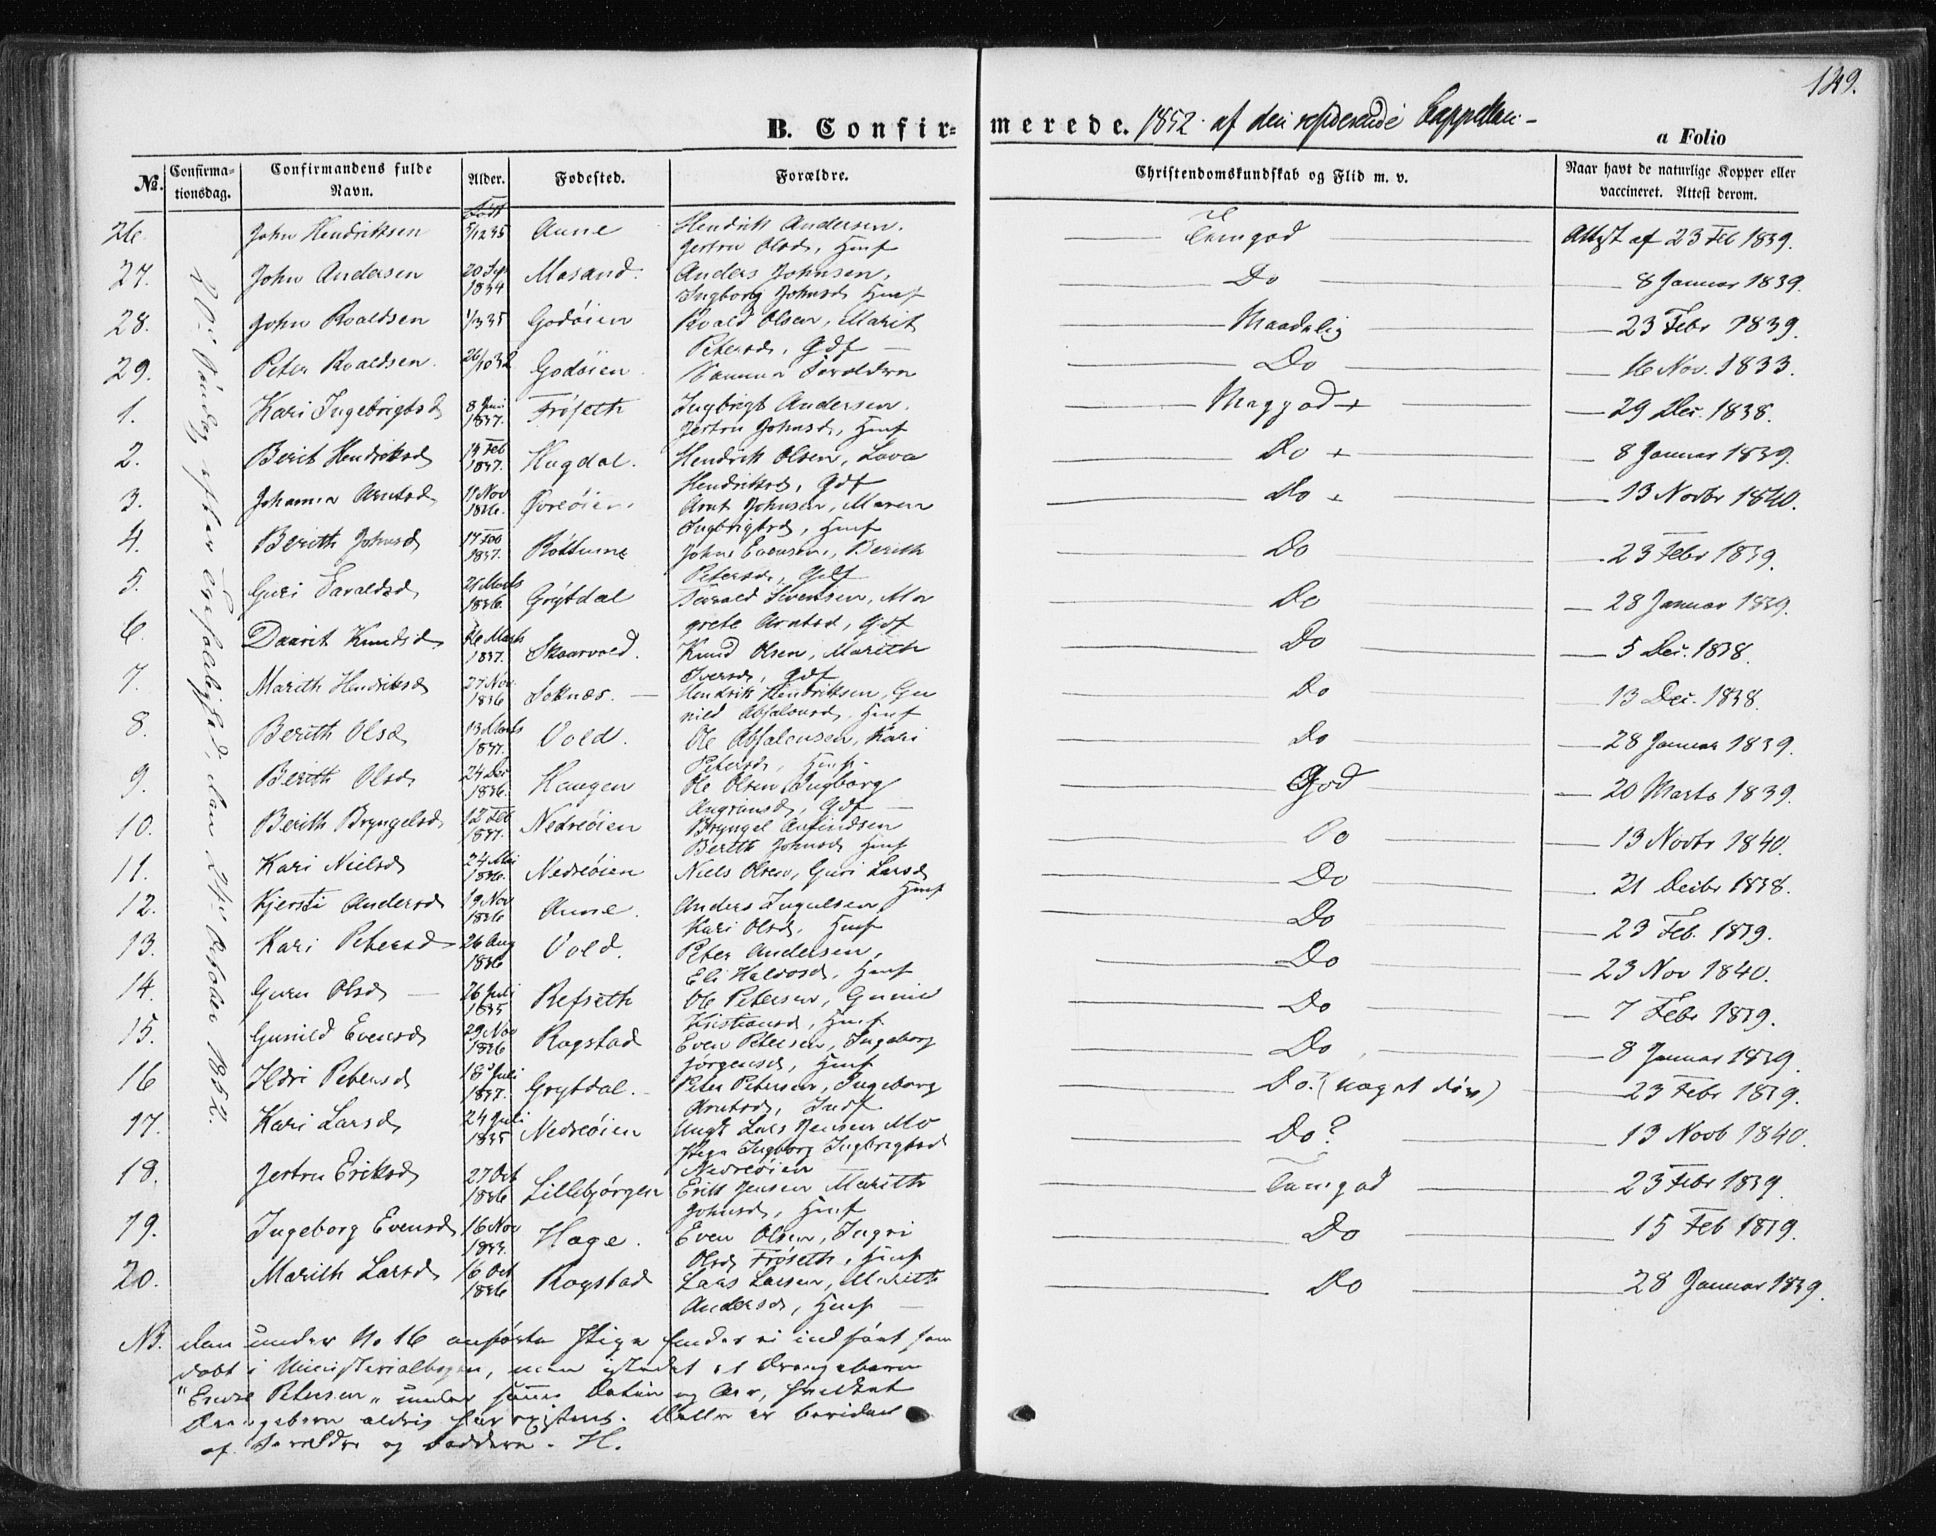 129.
B. Confirmerede. 1852 af den residerende Cappellan -
a Folio
No. Confirmationsdag. Confirmandens fulde Navn. Alder. Fødested. Forældre. Christendomskundskab og Flid m. v. Naar havt de naturlige Kopper eller vaccineret. Attest derom.
Født
20de Søndag efter Trefoldighed, den 24de October 1852.
26. John Hendriksen 5/12 35 Aune Hendrik Andersen, Temgod Attest af 23 Feb 1839.
Jertru Olsd, Hmf
27. John Andersen 20 Sep 1834 Mosand. Anders Johnsen, Do 8 Januar 1839.
Ingborg Johnsd Hmf
28. John Roaldsen 1/3 35 Godøien Roald Olsen, Marit Maadelig 23 Febr 1839.
Petersd, Gdf
29. Peter Roaldsen. 26/10 32 Godøien Samme Foreldre Do 16 Nov. 1833.
1. Kari Ingebrigtsd 8 Juni 1837. Frøseth Ingbrigt Andersen. Meggod + 29 Dec. 1838.
Jertru Johnsd, Hmf
2. Berit Hendriksd 19 Feb 1837. Hugdal. Hendrik Olsen, Lava Do + 8 Januar 1839.
Hendriksd, Gdf
3. Johanna Arntsd 11 Nov 1836. Øvreøien. Arnt Johnsen, Maren Do + 13 Novbr 1840.
Ingbrigtsd, Hmf
4. Berith Johnsd 17 Feb 1837. Røttume John Evensen, Berith Do 23 Febr 1839.
Petersd, Gdf
5. Guri Taraldsd 21 Marts 1836. Grytdal Tarald Sivertsen, Mar Do 28 Januar 1839.
grete Arntsd, Gdf
6. Daarit Knudsd 26 Marts 1837. Skaarvold. Knud Olsen, Marith Do 5 Dec. 1838.
Iversd, Gdf
7. Marith Hendriksd 27 Nov. 1836 Soknæs. Hendrik Hendriksen, Gu Do 13 Dec. 1838.
nild Absalonsd, Hmf
8. Berith Olsd 13 Marts 1837. Vold. Ole Absalonsen, Kari Do 28 Januar 1839.
Petersd, Hmf.
9. Berith Olsd 24 Dec 1836. Haugen Ole Olsen Ingborg God 20 Marts 1839.
Angrimsd, Gdf
10. Berith Bryngelsd 12 Feb 1837. Nedreøien Bryngel Arfindsen Do 13 Novbr 1840.
Berith Johnsd Hmf
11. Kari Nielsd 24 Mai 1836. Nedreøien Niels Olsen, Guri Larsd Do 21 Decbr 1838.
Hmf
12. Kjersti Andersd 19 Nov 1836 Aune. Anders Ingulsen, Do 23 Feb. 1839.
Kari Olsd, Hmf
13. Kari Petersd 26 Aug 1836 Vold. Peter Andersen, Do 23 Nov 1840.
Eli Halvosd, Hmf
14. Guru Olsd 26 Juli 1835 Refseth Ole Petersen, Gunild Do 7 Febr 1839.
Kristiansd, Hmf
15. Gunild Evensd 29 Nov 1836 Rogstad Even Petersen, Ingeborg Do 8 Januar 1839.
Jørgensd, Hmf
16 Ildri Petersd 18 Juli 1837. Grytdal. Peter Petersen, Ingeborg Do? (noget døv) 23 Febr 1839.
Arntsd, Indf
17. Kari Larsd 24 Juli 1835 Nedreøien Ungk Lars Jensen Mo Do? 13 Novb 1840.
Pige Ingborg Ingbrigtsd
Nedreøien
18. Jertru Eriksd 27 Oct 1836 Lillebjørgen Erik Jensen Marith Temgod 23 Febr 1839.
Johnsd, Hmf
19. Ingeborg Evensd 16 Nov 1833. Hage. Even Olsen, Ingri Do 15 Feb 1839.
Olsd Frøseth, Hmf
20. Marith Larsd 16 Oct 1836 Rogstad Lars Larsen, Marith Do 28 Januar 1839.
Andersd, Hmf
NB. den under No 16 anførte Pige findes ei indført som
døbt i Ministerialbogen, men istedet et Drengebarn
"Endre Petersen" under samme Datum og Aar, hvilket
Drengebarn aldrig har existeret. Dette er bevidnet
af Forældre og Faddere. H.